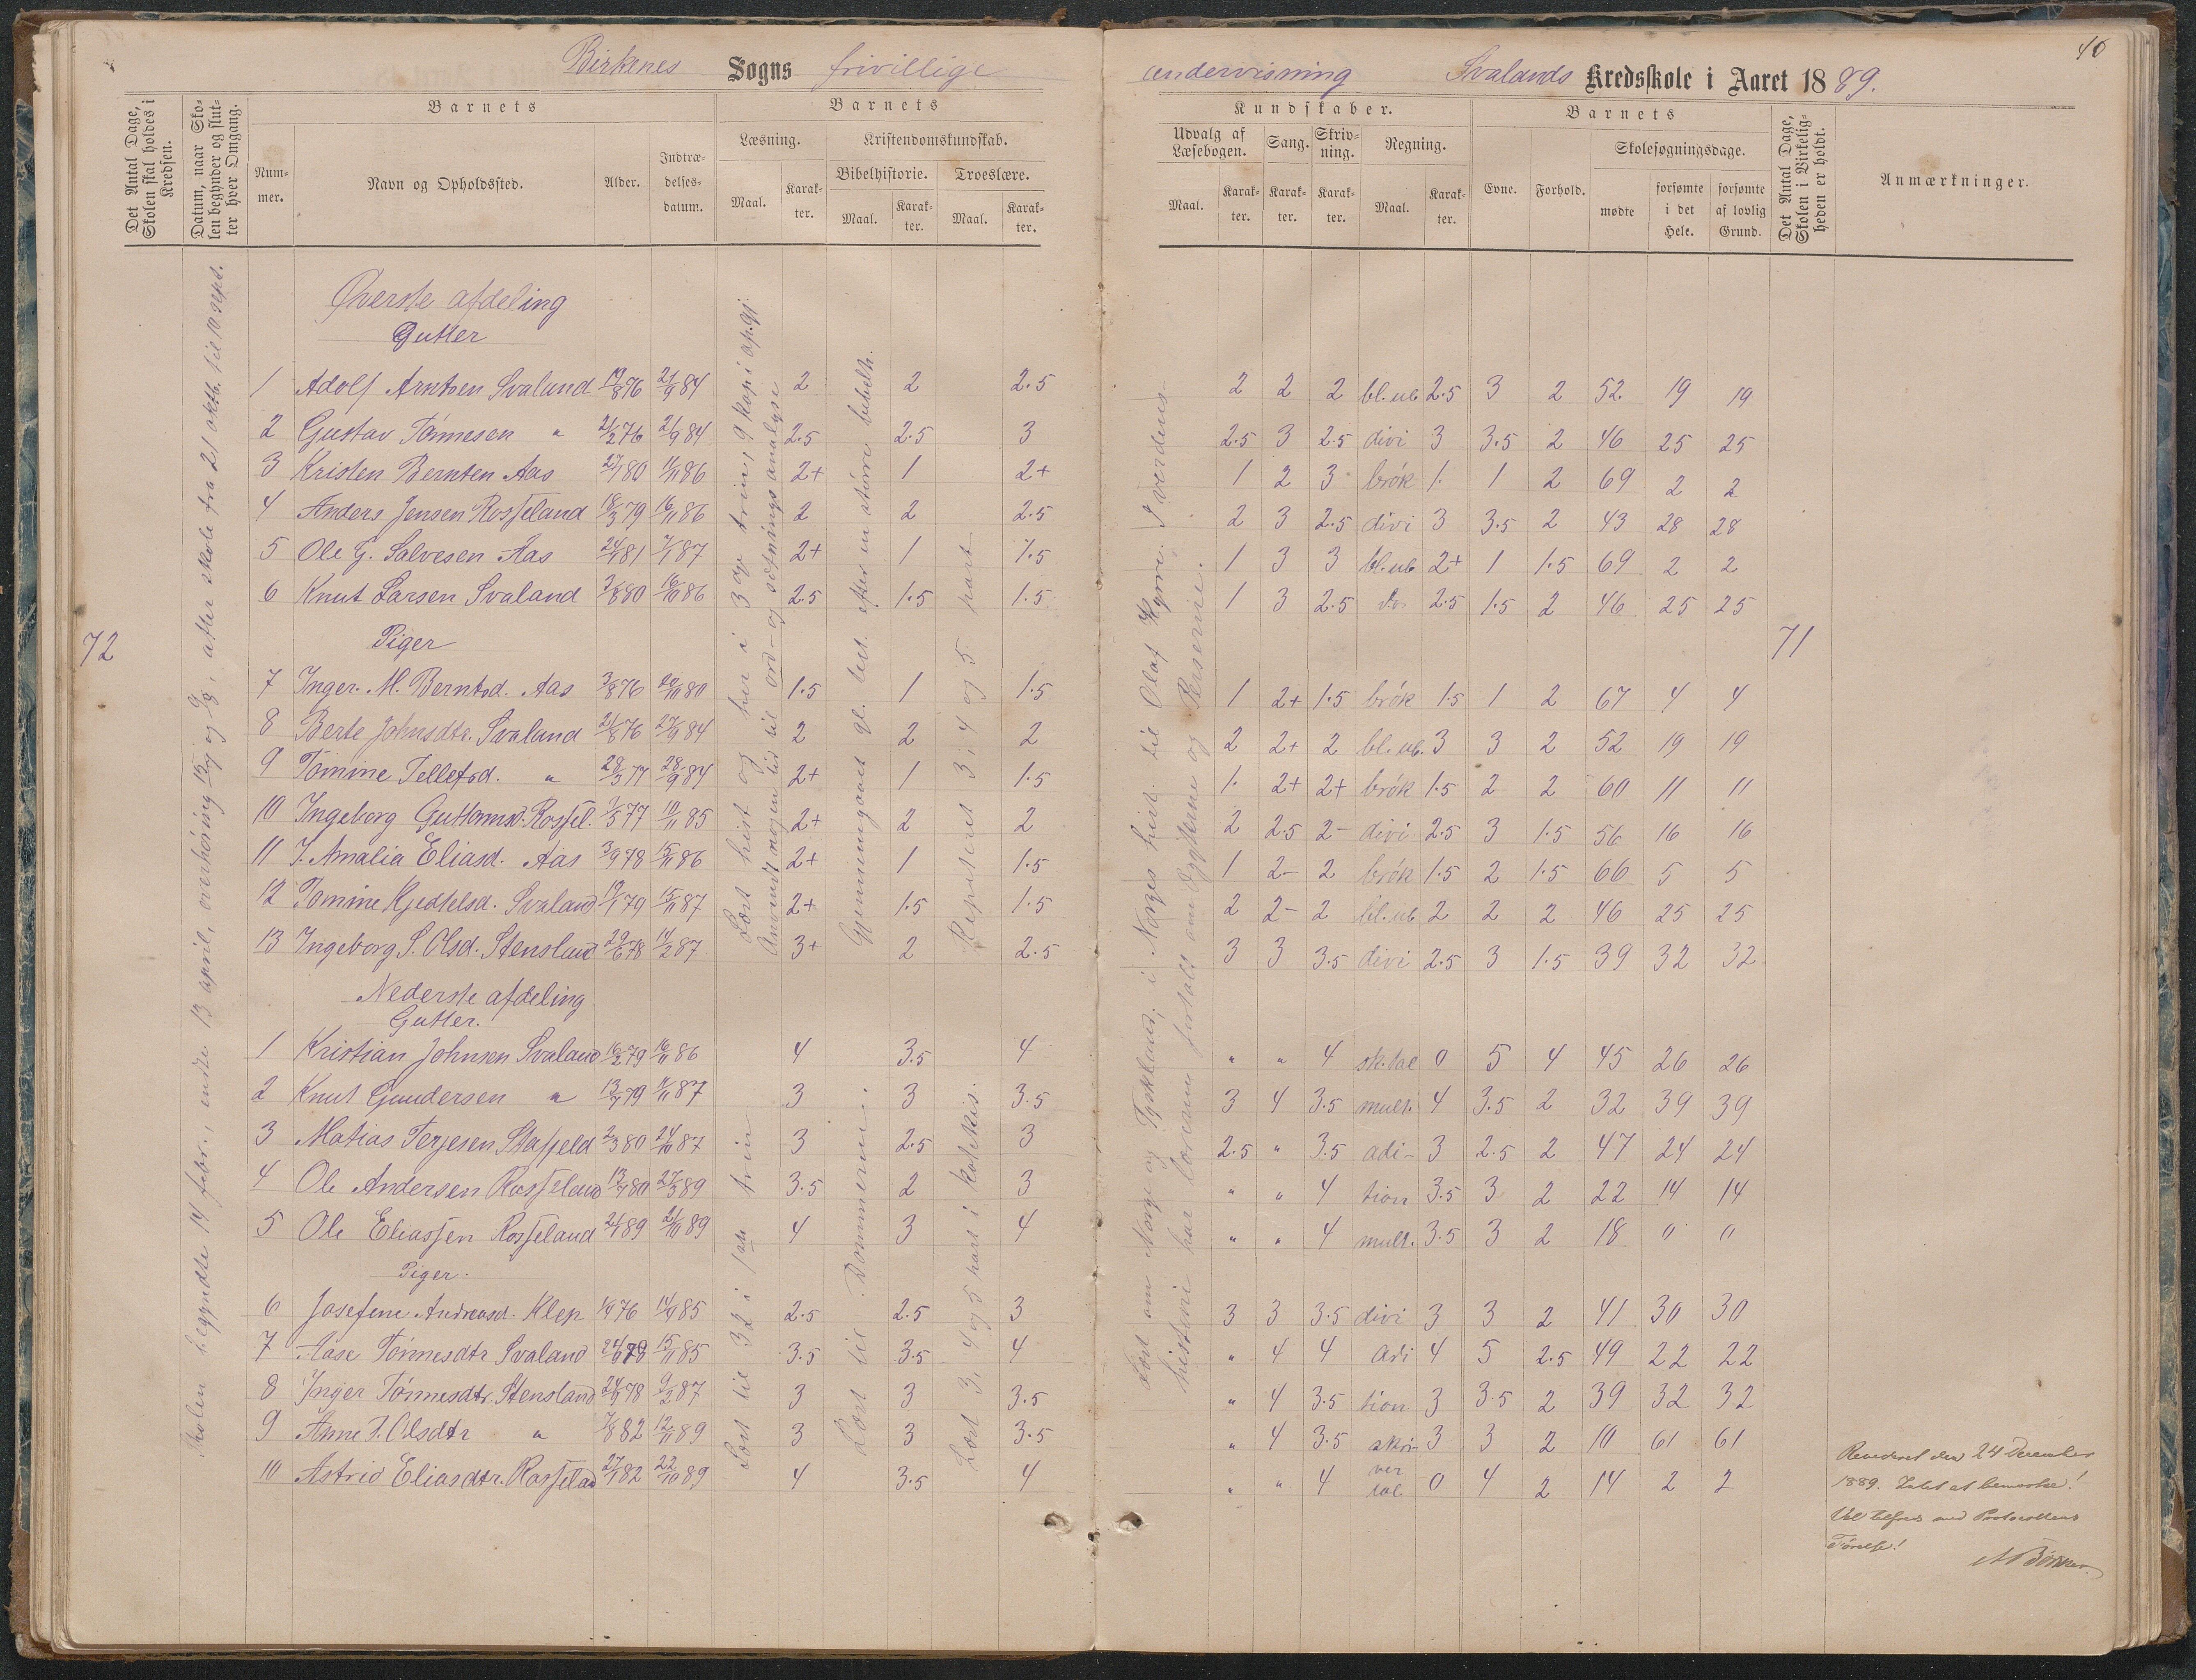 40
Birkenes Sogns frivillige undervisning Svalands Kredsskole i Aaret 1889.
Det Antal Dage, Skolen skal holdes i Kredsen.
Datum, naar Skolen begynder og slutter hver Omgang.
Barnets
Nummer.
Navn og Opholdssted.
Alder.
Indtrædelsesdatum.
Barnets
Læsning.
Maal.
Karakter.
Kristendomskundskab.
Bibelhistorie.
Maal.
Karakter.
Troeslære.
Maal.
Karakter.
Kundskaber.
Udvalg af Læsebogen.
Maal.
Karakter.
Sang.
Karakter.
Skrivning.
Karakter.
Regning.
Maal.
Karakter.
Barnets
Evne.
Forhold.
Skolesøgningsdage.
mødte
forsømte i det Hele.
forsømte af lovlig Grund.
Det Antal Dage, Skolen i Virkeligheden er holdt.
Anmærkninger.
Øverste afdeling
Gutter
1 Adolf Arntsen Svaland 19/8 76 21/9 84 2 2 2.5 2 2 2 bl.ub 2.5 3 2 52 19 19
2 Gustav Tønnesen " 21/2 76 21/9 84 2.5 2.5 3 2.5 3 2.5 divi 3 3.5 2 46 25 25
3 Kristen Bernten Aas 27/1 80 11/11 86 2+ 1 2+ 1 2 3 brøk 1. 1 2 69 2 2
4 Anders Jensen Rosseland 18/3 79 16/11 86 2 2 2.5 2 3 2.5 divi 3 3.5 2 43 28 28
5 Ole G. Salvesen Aas 24/1 81 7/1 87 2+ 1 1.5 1 3 3 bl.ub 2+ 1 1.5 69 2 2
6 Knut Larsen Svaland 3/8 80 16/10 86 2.5 1.5 1.5 1 3 2.5 2.5 1.5 2 46 25 25
72
71
Piger
7 Inger. M. Berntsd. Aas 3/8 76 20/11 80 1.5 1 1.5 1 2+ 1.5 brøk 1.5 1 2 67 4 4
8 Berte Johnsdtr. Svaland 21/8 76 27/9 84 2 2 2 2 2+ 2 bl.ub. 3 3 2 52 19 19
9 Tomine Tellefsd. " 28/3 77 28/9 84 2+ 1 1.5 1. 2+ 2+ brøk 1.5 2 2 60 11 11
10 Ingeborg Guttormsd. Rossel. 7/5 77 10/11 85 2+ 2 2 2 2.5 2- divi 2.5 3 1.5 56 16 16
11 J. Amalia Eliasd. Aas 3/9 78 15/11 86 2+ 1 1.5 1 2- 2 brøk 1.5 2 1.5 66 5 5
12 Tomine Kjedtelsd. Svaland 19/1 79 15/11 87 2+ 1.5 1.5 2 2- 2 bl.ub. 2 2 2 46 25 25
13 Ingeborg S. Olsd. Stensland 29/6 78 14/2 87 3+ 2 2.5 3 3 3.5 divi 2.5 3 1.5 39 32 32
Nederste afdeling
Gutter.
1 Kristian Johnsen Svaland 16/2 79 16/11 86 4 3.5 4 " " 4 sk.tal 0 5 4 45 26 26
2 Knut Gundersen " 13/7 79 11/11 87 3 3 3.5 3 4 3.5 mult. 4 3.5 2 32 39 39
3 Matias Terjesen Stapfeld 2/3 80 24/10 87 3 2.5 3 2.5 " 3.5 adi- 3 2.5 2 47 24 24
4 Ole Andersen Rosseland 13/7 80 27/3 89 3.5 2 3 " " 4 tion 3.5 3 2 22 14 14
5 Ole Eliassen Rosseland 21/1 89 21/10 89 4 3 4 " " 4 mult. 3.5 3 2 18 0 0
Piger.
6 Josefene Andreasd. Klep 1/9 76 14/9 85 2.5 2.5 3 3 3 3.5 divi 3 3 2 41 30 30
7 Aase Tønnesdtr Svaland 24/6 78 15/11 85 3.5 3.5 4 " 4 4 Adi 4 5 2.5 49 22 22
8 Inger Tønnesdtr. Stensland 24/9 78 9/2 87 3 3 3.5 " 4 3.5 tion 3 3.5 2 39 32 32
9 Anne T. Olsdtr " 7/8 82 12/11 89 3 3 3.5 " 4 3.5 skri- 3 3 2 10 61 61
10 Astrid Eliasdtr. Rosseland 27/1 82 22/10 89 4 3.5 4 " " 4 ver tal 0 4 2 14 2 2
Skolen begyndte 14 febr., endte 13 april, overhøring 15/7 og 9/8, atter skole fra 21 oktb. til 10 sept.
Læst hist og her i 3 og trin, 9 kap i ap.gj.
Anvendt nogen tid til ord- og sætningsanalyse
Gjennemgaaet gl. test. efter en større bibelh.
Repeteret 3 i 4 og 5 part
Læst til 32 i 1ste trin
Læst til Dommerne.
Læst 3, 4 og 5 part i katekis.
Læst om Norge og Tyskland; i Norges hist. til Olaf Kyrre. I verdens-
historie har læreren fortalt om Ægypterne og Perserne.
Revideret den 24 December
1889. Intet at bemærke!
Vel tilfreds med Protocollens
Førelse!